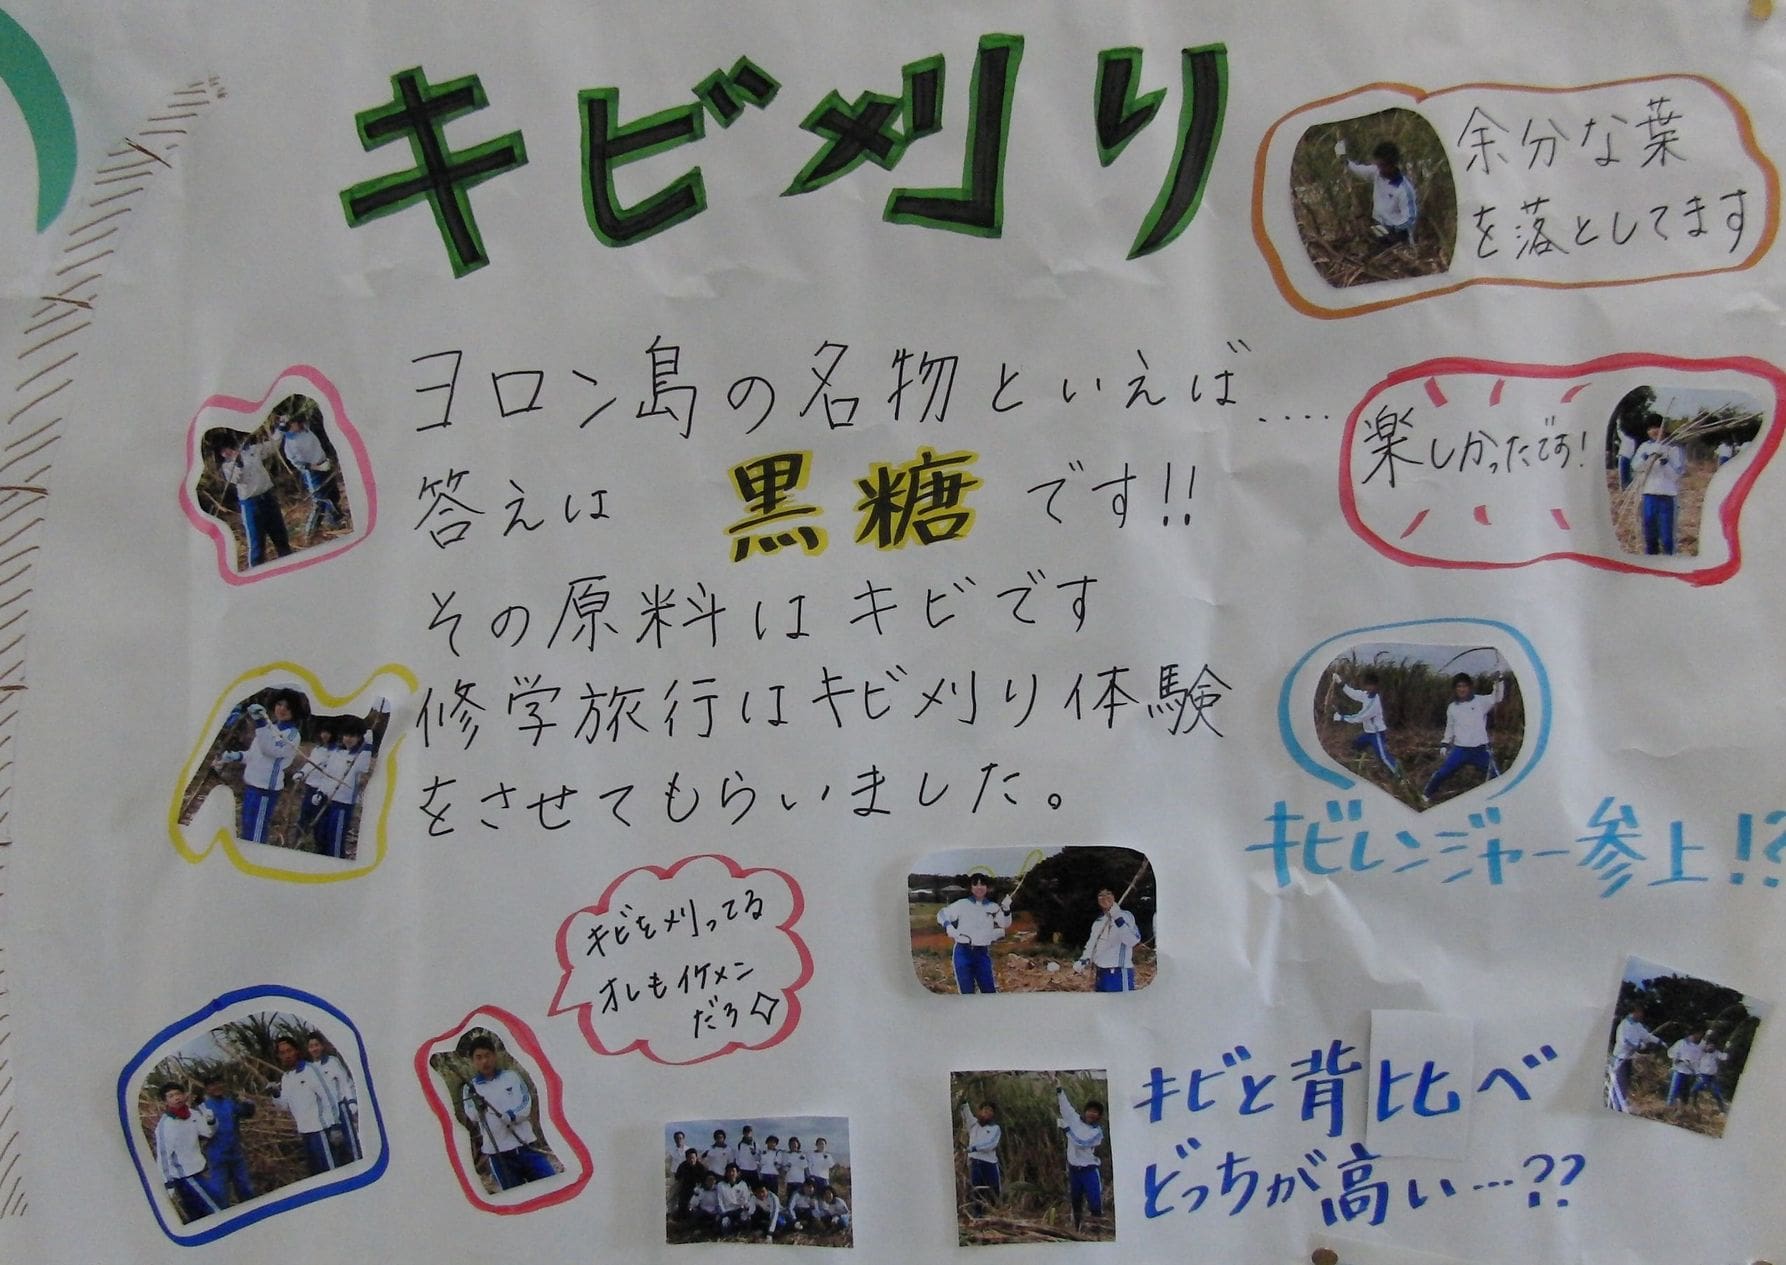 キビ刈り
余分な葉
を落としてます
ヨロン島の名物といえば....
答えは 黒糖です!!
その原料はキビです
修学旅行はキビ刈り体験
をさせてもらいました。
楽しかったです!
キビレンジャー参上!?
キビを刈ってる
オレもイケメン
だろ
キビと背比べ
どっちが高い…??